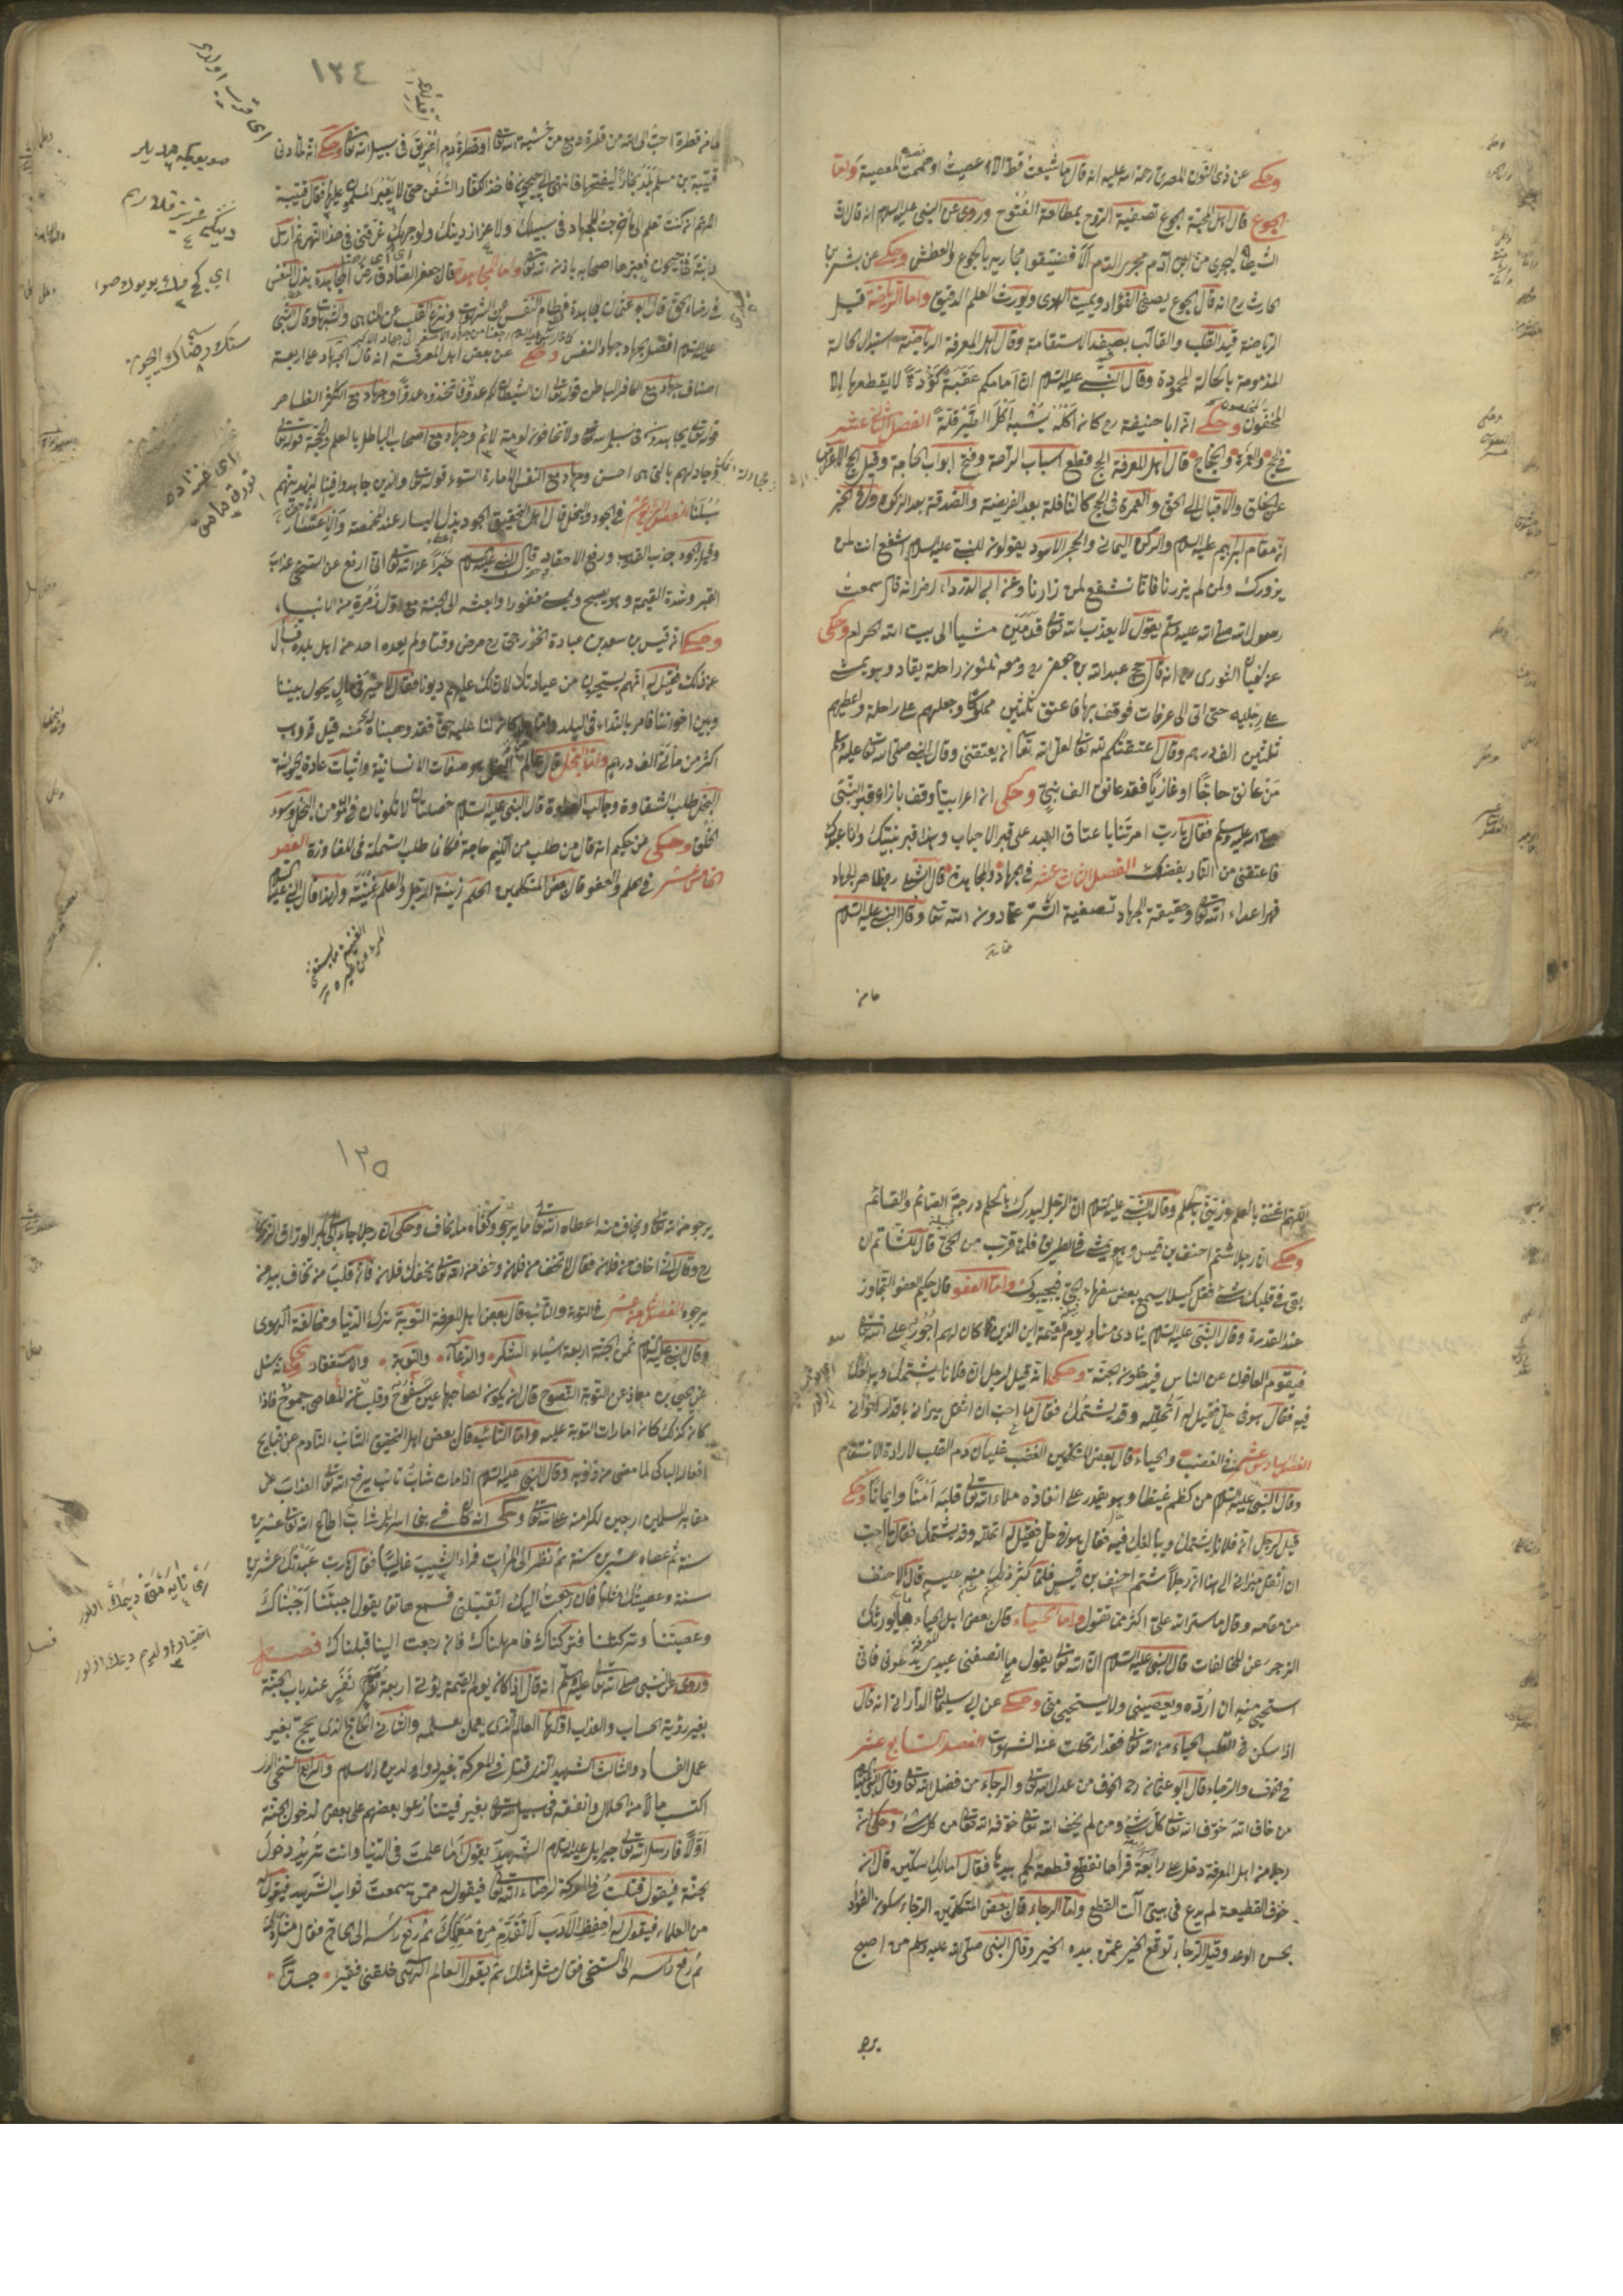 وحكي عن ذي النون المصري رحمة الله عليه انه قال ما شبعت قط الا عصيت او هممت بمعصية واما
الجوع قال اهل المحبة الجوع تصفية الروح بمطالعة الفتوح وروي عن النبي عليه السلام انه قال ان
الشيطان ليجري من ابن آدم مجرى الدم الا فضيقوا مجاريه بالجوع والعطش وحكي عن بشر بن
الحارث رح انه قال الجوع يصفي الفؤاد ويميت الهوى ويورث العلم الدقيق واما الرياضة قيل
الرياضة قيد القلب والقالب بصفة الاستقامة وقال اهل المعرفة الرياضة استبدال الحالة
المذمومة بالحالة المحمودة وقال النبي عليه السلام ان امامكم عقبة كؤدة لا يقطعها الا
المخفون وحكي ان ابا حنيفة رح كان اكله يشبه اكل الطير قلة الفصل الثاني عشر
في الحج والعمرة والحجاج قال اهل المعرفة الحج قطع اسباب الراحة وفتح ابواب الحاجة وقيل الحج الاعراض
عن الخلق والاقبال الى الحق والعمرة في الحج كالنافلة بعد الفريضة والصدقة بعد الزكوة وفي الخبر
ان مقام ابرهيم عليه السلام والركن اليماني والحجر الاسود يقولون للنبي عليه السلام اشفع انت لمن
يزورك ولمن لم يزرنا فانا نشفع لمن زارنا وعن ابي الدرداء رضي انه قال سمعت
رسول الله صلى الله عليه وسلم يقول لا يعذب الله تعالى قدمين مشيا الى بيت الله الحرام وحكي
عن سفيان الثوري رح انه قال حج عبد الله بن جعفر رح ومعه ثلثون راحلة يقاد وهو يمشي
على رجليه حتى اتى الى عرفات فوقف بها فاعتق ثلثين مملوكا وجعلهم على راحلة واعطيهم
ثلثين الف درهم وقال اعتقتكم لله تعالى لعل الله تعالى ان يعتقني وقال النبي صلى الله تعالى عليه وسلم
من عانق حاجا او غازيا فقد عانق الف نبي وحكي ان اعرابيا وقف بازاء قبر النبي
صلى الله عليه وسلم فقال يا رب امرتنا باعتاق العبيد على قبر الاحباب وهذا قبر نبيك وانا عبدك
فاعتقني من النار بفضلك الفصل الثالث عشر في الجهاد والمجاهدة قال الشبلي رح ظاهر الجهاد
قهر اعداء الله تعالى وحقيقة الجهاد تصفية السر عما دون الله تعالى وقال النبي عليه السلام
ما من
١٣٤
ما من قطرة احب الى الله من قطرة دمع من خشية الله تعالى او قطرة دم اهريق في سبيل الله تعالى وحكي انه لما دنى
قتيبة بن مسلم بلد بخارا ليفتحها فانتهى الى جيحون فاخذ الكفار السفن حتى لا يعبر المسلمون عليها فقال قتيبة
اللهم ان كنت تعلم اني ما خرجت للجهاد في سبيلك ولاعزاز دينك ولوجهك فلا تغرقني في هذا النهر ثم ارسل
دابته في جيحون فعبر مع اصحابه باذن الله تعالى واما المجاهدة قال جعفر الصادق رض المجاهدة بذل النفس
في رضاء الحق قال ابو عثمان المجاهدة فطام النفس عن الشهوات ونزع القلب عن المناهي والشبهات وقال النبي
عليه السلام افضل الجهاد جهاد النفس وحكي عن بعض اهل المعرفة انه قال الجهاد على اربعة
اصناف جهاد مع الكافر الباطن قوله تعالى ان الشيطان لكم عدو فاتخذوه عدوا وجهاد مع الكفر الظاهر
قوله تعالى يجاهدون في سبيل الله ولا يخافون لومة لائم وجهاد مع اصحاب الباطل بالعلم والحجة قوله تعالى
وجادلهم بالتي هي احسن وجهاد مع النفس الامارة بالسوء قوله تعالى والذين جاهدوا فينا لنهدينهم
سبلنا الفصل الرابع عشر في الجود والبخل قال اهل التحقيق الجود بذل اليسار عند المخمصة والاعسار
وقيل الجود جذب القلوب ورفع الاحقاد قال النبي عليه السلام خبرا عن الله تعالى اني ارفع عن السخي عذاب
القبر وشدة القيمة وهو يصبح ويمسي مغفورا وابعثه الى الجنة مع اول زمرة من الانبياء
وحكي ان قيس بن سعد بن عبادة الخزرجي رح مرض وقتا ولم يعده احد من اهل بلده فسأل
عن ذلك فقيل له انهم يستحيون من عيادتك لان لك عليهم ديونا فقال لا خير في مال يحول بيننا
وبين اخواننا فامر بالنداء في البلد من كان لنا عليه حق فقد وهبناه له قيل فوهب
اكثر من مائة الف درهم واما البخل قال عالم البخل محو صفات الانسانية واثبات عادة الحيوانية
البخل طلب الشقاوة وجالب العداوة قال النبي عليه السلام خصلتان لا تكونان في المؤمن البخل وسوء
الخلق وحكي من حكيم انه قال من طلب من اللئيم حاجة فكانما طلب السمكة في المفازة الفصل
الخامس عشر في الحلم والعفو قال بعض المتكلمين الحلم زينة الرجل والعلم غنيته ولهذا قال النبي عليه السلام
اللهم اغنني بالعلم وزيني بالحلم وقال النبي عليه السلام ان الرجل ليدرك بالحلم درجة الصائم والقائم
وحكي ان رجلا شتم احنف بن قيس وهو يمشي في الطريق فلما قرب من الحي قال للشاتم ان
بقي في قلبك شيء فقل كيلا يسمع بعض سفهاء الحي فيجيبوك واما العفو قال حكيم العفو التجاوز
عند القدرة وقال النبي عليه السلام ينادي مناد يوم القيمة اين الذين كان لهم اجور على الله تعالى
فيقوم العافون عن الناس فيدخلون الجنة وحكي انه قيل لرجل ان فلانا يشتمك ويبالغ
فيه فقال هو في حل فقيل له اتحلله وقد يشتمك فقال ما احب ان اثقل ميزاني باوزار اخواني
الفصل السادس عشر في الغضب والحياء قال بعض المتكلمين الغضب غليان دم القلب لارادة الانتقام
وقال النبي عليه السلام من كظم غيظا وهو يقدر على انفاذه ملأ الله تعالى قلبه امنا وايمانا وحكي
قيل لرجل ان فلانا يشتمك ويبالغ فيه فقال هو في حل فقيل له اتحلله وقد يشتمك فقال ما احب
ان اثقل ميزاني الى هنا ان رجلا شتم احنف بن قيس فلما كثر ذلك منه عليه قال الاحنف
من مقامه وقال ما ستر الله علي اكثر مما تقول واما الحياء قال بعض اهل الحياء ما يورثك
الزجر عن المخالفات قال النبي عليه السلام ان الله تعالى يقول ما انصفني عبدي يدعوني فاني
استحيي منه ان ارده ويعصيني ولا يستحيي مني وحكي عن ابي سليمان الداراني انه قال
اذا سكن في القلب الحياء من الله تعالى فقد ارتحلت عنه الشهوات الفصل السابع عشر
في الخوف والرجاء قال ابو عثمان رح الخوف من عدل الله تعالى والرجاء من فضل الله تعالى وقال النبي عليه السلام
من خاف الله خوف الله تعالى كل شيء ومن لم يخف الله تعالى خوفه الله تعالى من كل شيء وحكي ان
رجلا من اهل المعرفة دخل على رابعة فرآها تقطع قطعة لحم بيدها فقال اما لك سكين قال ان
خوف القطيعة لم يدع في بيتي آلت القطع واما الرجاء قال بعض المتكلمين الرجاء سكون الفؤاد
بحسن الوعد وقيل الرجاء توقع الخير عمن بيده الخير وقال النبي صلى الله عليه وسلم من اصبح
يرجو
١٣٥
يرجو من الله تعالى ويخاف منه اعطاه الله تعالى ما يرجو وكفاه ما يخاف وحكي ان رجلا جاء الى ابي بكر الوراق الترمذي
رح وقال اني اخاف من فلان فقال لا تخف من فلان وخف من الله تعالى يخفك فلان فان قلب من تخاف بيد من
يرجوه الفصل الثامن عشر في التوبة والتائب قال بعض اهل المعرفة التوبة ترك الدنيا ومخالفة الهوى
وقال النبي عليه السلام ثمن الجنة اربعة اشياء الشكر والدعاء والتوبة والاستغفار وحكي انه سئل
عن يحيى بن معاذ عن التوبة النصوح قال ان يكون لصاحبها عين سفوح وقلب عن المعاصي جموح فاذا
كان كذلك كان امارات التوبة عليه واما التائب قال بعض اهل التحقيق التائب النادم عن قبايح
افعاله الباكي لما مضى من ذنوبه وقال النبي عليه السلام اذا مات شاب تائب يرفع الله تعالى العذاب عن
مقابر المسلمين اربعين لكرامته على الله تعالى وحكي انه كان في بني اسرائيل شاب اطاع الله تعالى عشرين
سنة ثم عصاه عشرين سنة ثم نظر الى المرآت فرأى الشيب غالبا فقال يا رب عبدتك عشرين
سنة وعصيتك مثلها فان رجعت اليك اتقبلني فسمع هاتفا يقول احببتنا احببناك
وعصيتنا وتركتنا فتركناك فامهلناك فان رجعت الينا قبلناك فصل
وروي عن النبي صلى الله تعالى عليه وسلم انه قال اذا كان يوم القيمة يؤتى اربعة نفر عند باب الجنة
بغير رؤية الحساب والعذاب اولها العالم الذي يعمل بعلمه والثاني الحاج الذي يحج بغير
عمل الفساد والثالث الشهيد الذي قتل في المعركة والرابع السخي الذي
اكتسب مالا من الحلال وانفقه في سبيل الله تعالى بغير فيتنازعوا بعضهم على بعض لدخول الجنة
اولا فارسل الله تعالى جبرائيل عليه السلام الشهيد يقول ما علمت في الدنيا وانت تريد دخول
الجنة فيقول قتلت في المعركة لرضاء الله تعالى فيقول له ممن سمعت ثواب الشهيد فيقول
من العلماء فيقول له احفظ الادب لا تقدم من معلمك ثم رفع رأسه الى الحاج فقال مثل ذلك
ثم رفع رأسه الى السخي فقال مثل ذلك ثم يقول العالم الهي خلقتني فقيرا